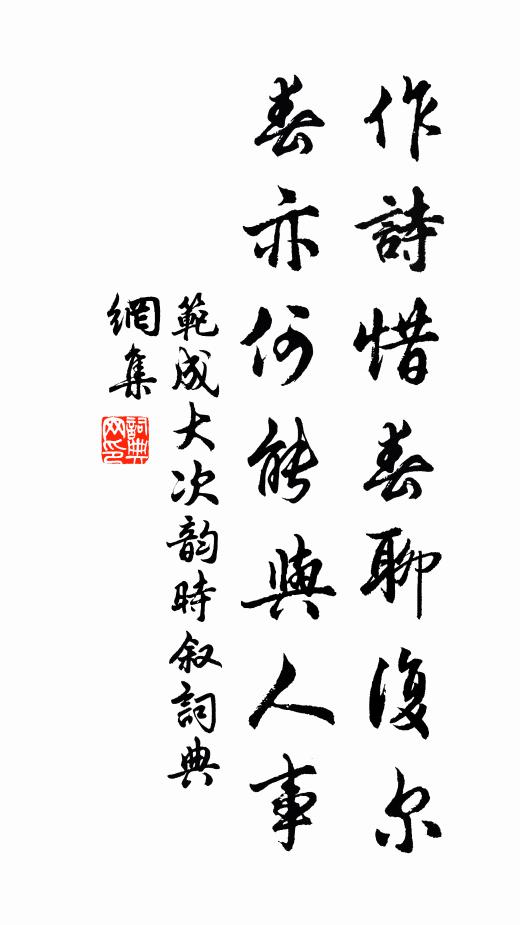 作詩惜春聊復尔
春亦何能與人事
範成大次韵時叙詞典
網集
詞典
网印